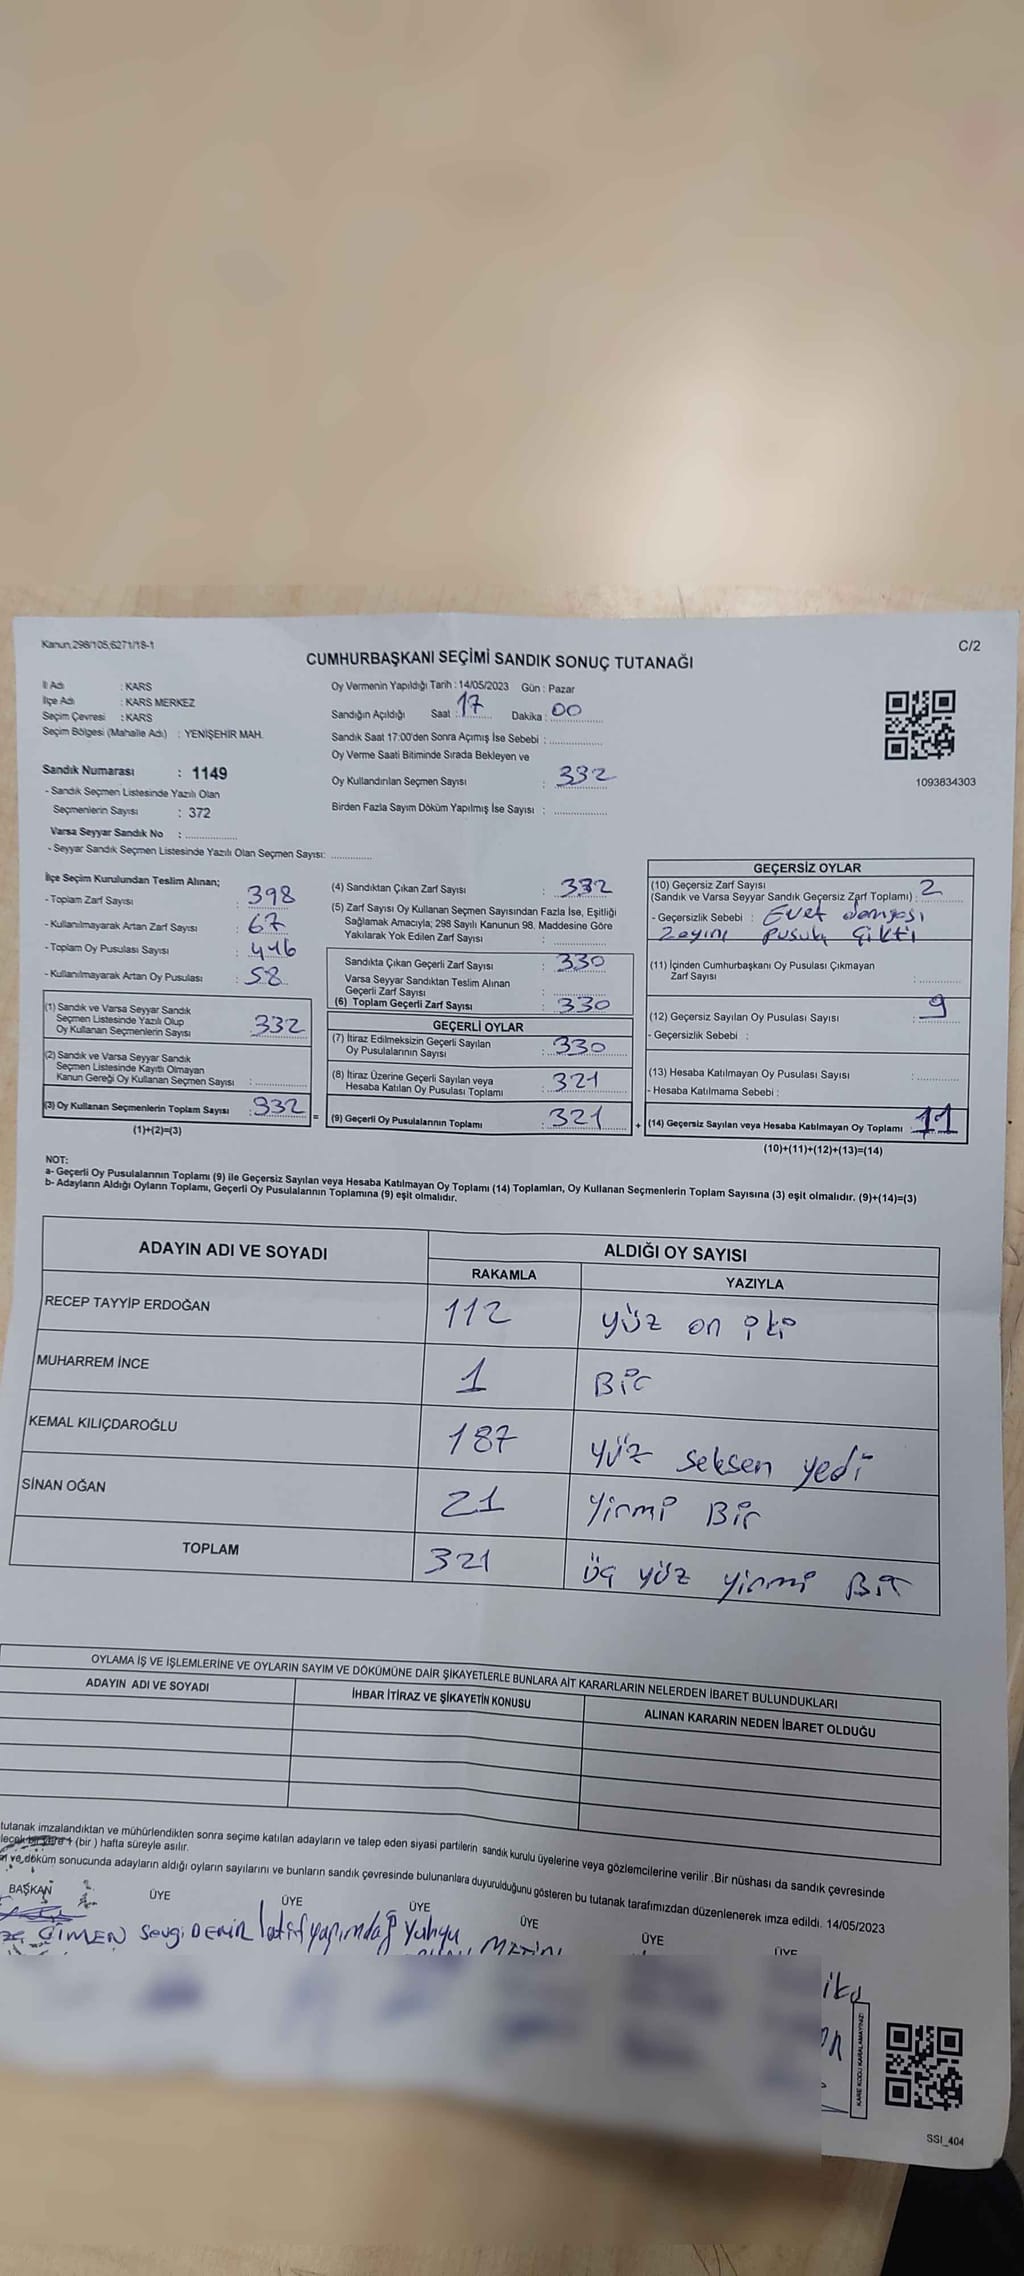 Kanun,298/105,6271/18-1
C/2
CUMHURBAŞKANI SEÇİMİ SANDIK SONUÇ TUTANAĞI
İl Adı : KARS
İlçe Adı : KARS MERKEZ
Seçim Çevresi : KARS
Seçim Bölgesi (Mahalle Adı) : YENİŞEHİR MAH.
Sandık Numarası : 1149
- Sandık Seçmen Listesinde Yazılı Olan
Seçmenlerin Sayısı : 372
Varsa Seyyar Sandık No :
- Seyyar Sandık Seçmen Listesinde Yazılı Olan Seçmen Sayısı:
Oy Vermenin Yapıldığı Tarih : 14/05/2023 Gün : Pazar
Sandığın Açıldığı Saat : 17 Dakika : 00
Sandık Saat 17:00'den Sonra Açımış İse Sebebi :
Oy Verme Saati Bitiminde Sırada Bekleyen ve
Oy Kullandırılan Seçmen Sayısı : 332
Birden Fazla Sayım Döküm Yapılmış İse Sayısı :
1093834303
İlçe Seçim Kurulundan Teslim Alınan;
- Toplam Zarf Sayısı : 398
- Kullanılmayarak Artan Zarf Sayısı : 67
- Toplam Oy Pusulası Sayısı : 416
- Kullanılmayarak Artan Oy Pusulası : 58
(1) Sandık ve Varsa Seyyar Sandık
Seçmen Listesinde Yazılı Olup
Oy Kullanan Seçmenlerin Sayısı : 332
(2) Sandık ve Varsa Seyyar Sandık
Seçmen Listesinde Kayıtlı Olmayan
Kanun Gereği Oy Kullanan Seçmen Sayısı :
(3) Oy Kullanan Seçmenlerin Toplam Sayısı : 332
(1)+(2)=(3)
=
(4) Sandıktan Çıkan Zarf Sayısı : 332
(5) Zarf Sayısı Oy Kullanan Seçmen Sayısından Fazla İse, Eşitliği
Sağlamak Amacıyla; 298 Sayılı Kanunun 98. Maddesine Göre
Yakılarak Yok Edilen Zarf Sayısı :
Sandıkta Çıkan Geçerli Zarf Sayısı : 330
Varsa Seyyar Sandıktan Teslim Alınan
Geçerli Zarf Sayısı :
(6) Toplam Geçerli Zarf Sayısı : 330
GEÇERLİ OYLAR
(7) İtiraz Edilmeksizin Geçerli Sayılan
Oy Pusulalarının Sayısı : 330
(8) İtiraz Üzerine Geçerli Sayılan veya
Hesaba Katılan Oy Pusulası Toplamı : 321
(9) Geçerli Oy Pusulalarının Toplamı : 321
+
GEÇERSİZ OYLAR
(10) Geçersiz Zarf Sayısı
(Sandık ve Varsa Seyyar Sandık Geçersiz Zarf Toplamı) : 2
- Geçersizlik Sebebi : Evet damgası
pusula Çıktı
(11) İçinden Cumhurbaşkanı Oy Pusulası Çıkmayan
Zarf Sayısı :
(12) Geçersiz Sayılan Oy Pusulası Sayısı : 9
- Geçersizlik Sebebi :
(13) Hesaba Katılmayan Oy Pusulası Sayısı :
- Hesaba Katılmama Sebebi :
(14) Geçersiz Sayılan veya Hesaba Katılmayan Oy Toplamı : 11
(10)+(11)+(12)+(13)=(14)
NOT:
a- Geçerli Oy Pusulalarının Toplamı (9) ile Geçersiz Sayılan veya Hesaba Katılmayan Oy Toplamı (14) Toplamları, Oy Kullanan Seçmenlerin Toplam Sayısına (3) eşit olmalıdır. (9)+(14)=(3)
b- Adayların Aldığı Oyların Toplamı, Geçerli Oy Pusulalarının Toplamına (9) eşit olmalıdır.
ADAYIN ADI VE SOYADI
ALDIĞI OY SAYISI
RAKAMLA YAZIYLA
RECEP TAYYİP ERDOĞAN 112 yüz on iki
MUHARREM İNCE 1 Bir
KEMAL KILIÇDAROĞLU 187 yüz seksen yedi
SİNAN OĞAN 21 yirmi Bir
TOPLAM 321 üç yüz yirmi Bir
OYLAMA İŞ VE İŞLEMLERİNE VE OYLARIN SAYIM VE DÖKÜMÜNE DAİR ŞİKAYETLERLE BUNLARA AİT KARARLARIN NELERDEN İBARET BULUNDUKLARI
ADAYIN ADI VE SOYADI İHBAR İTİRAZ VE ŞİKAYETİN KONUSU ALINAN KARARIN NEDEN İBARET OLDUĞU
tutanak imzalandıktan ve mühürlendikten sonra seçime katılan adayların ve talep eden siyasi partilerin sandık kurulu üyelerine veya gözlemcilerine verilir .Bir nüshası da sandık çevresinde
1 (bir ) hafta süreyle asılır.
ve döküm sonucunda adayların aldığı oyların sayılarını ve bunların sandık çevresinde bulunanlara duyurulduğunu gösteren bu tutanak tarafımızdan düzenlenerek imza edildi. 14/05/2023
BAŞKAN ÜYE ÜYE ÜYE ÜYE ÜYE ÜYE
ÇİMEN Sevgi DEMİR
KARE KODU KARALAMAYINIZ!
SSI_404